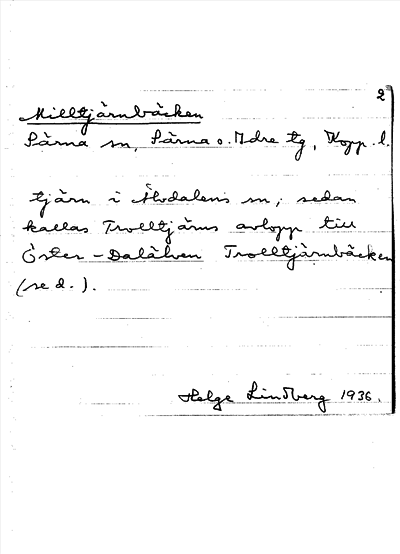 2
Milltjärnbäcken
Särna sn, Särna o. Idre tg, Kopp. l.
tjärn i Älvdalens sn, sedan
kallas Trolltjärns avlopp till
Öster-Dalälven Trolltjärnbäcken
(se d.).
Helge Lindberg 1936.